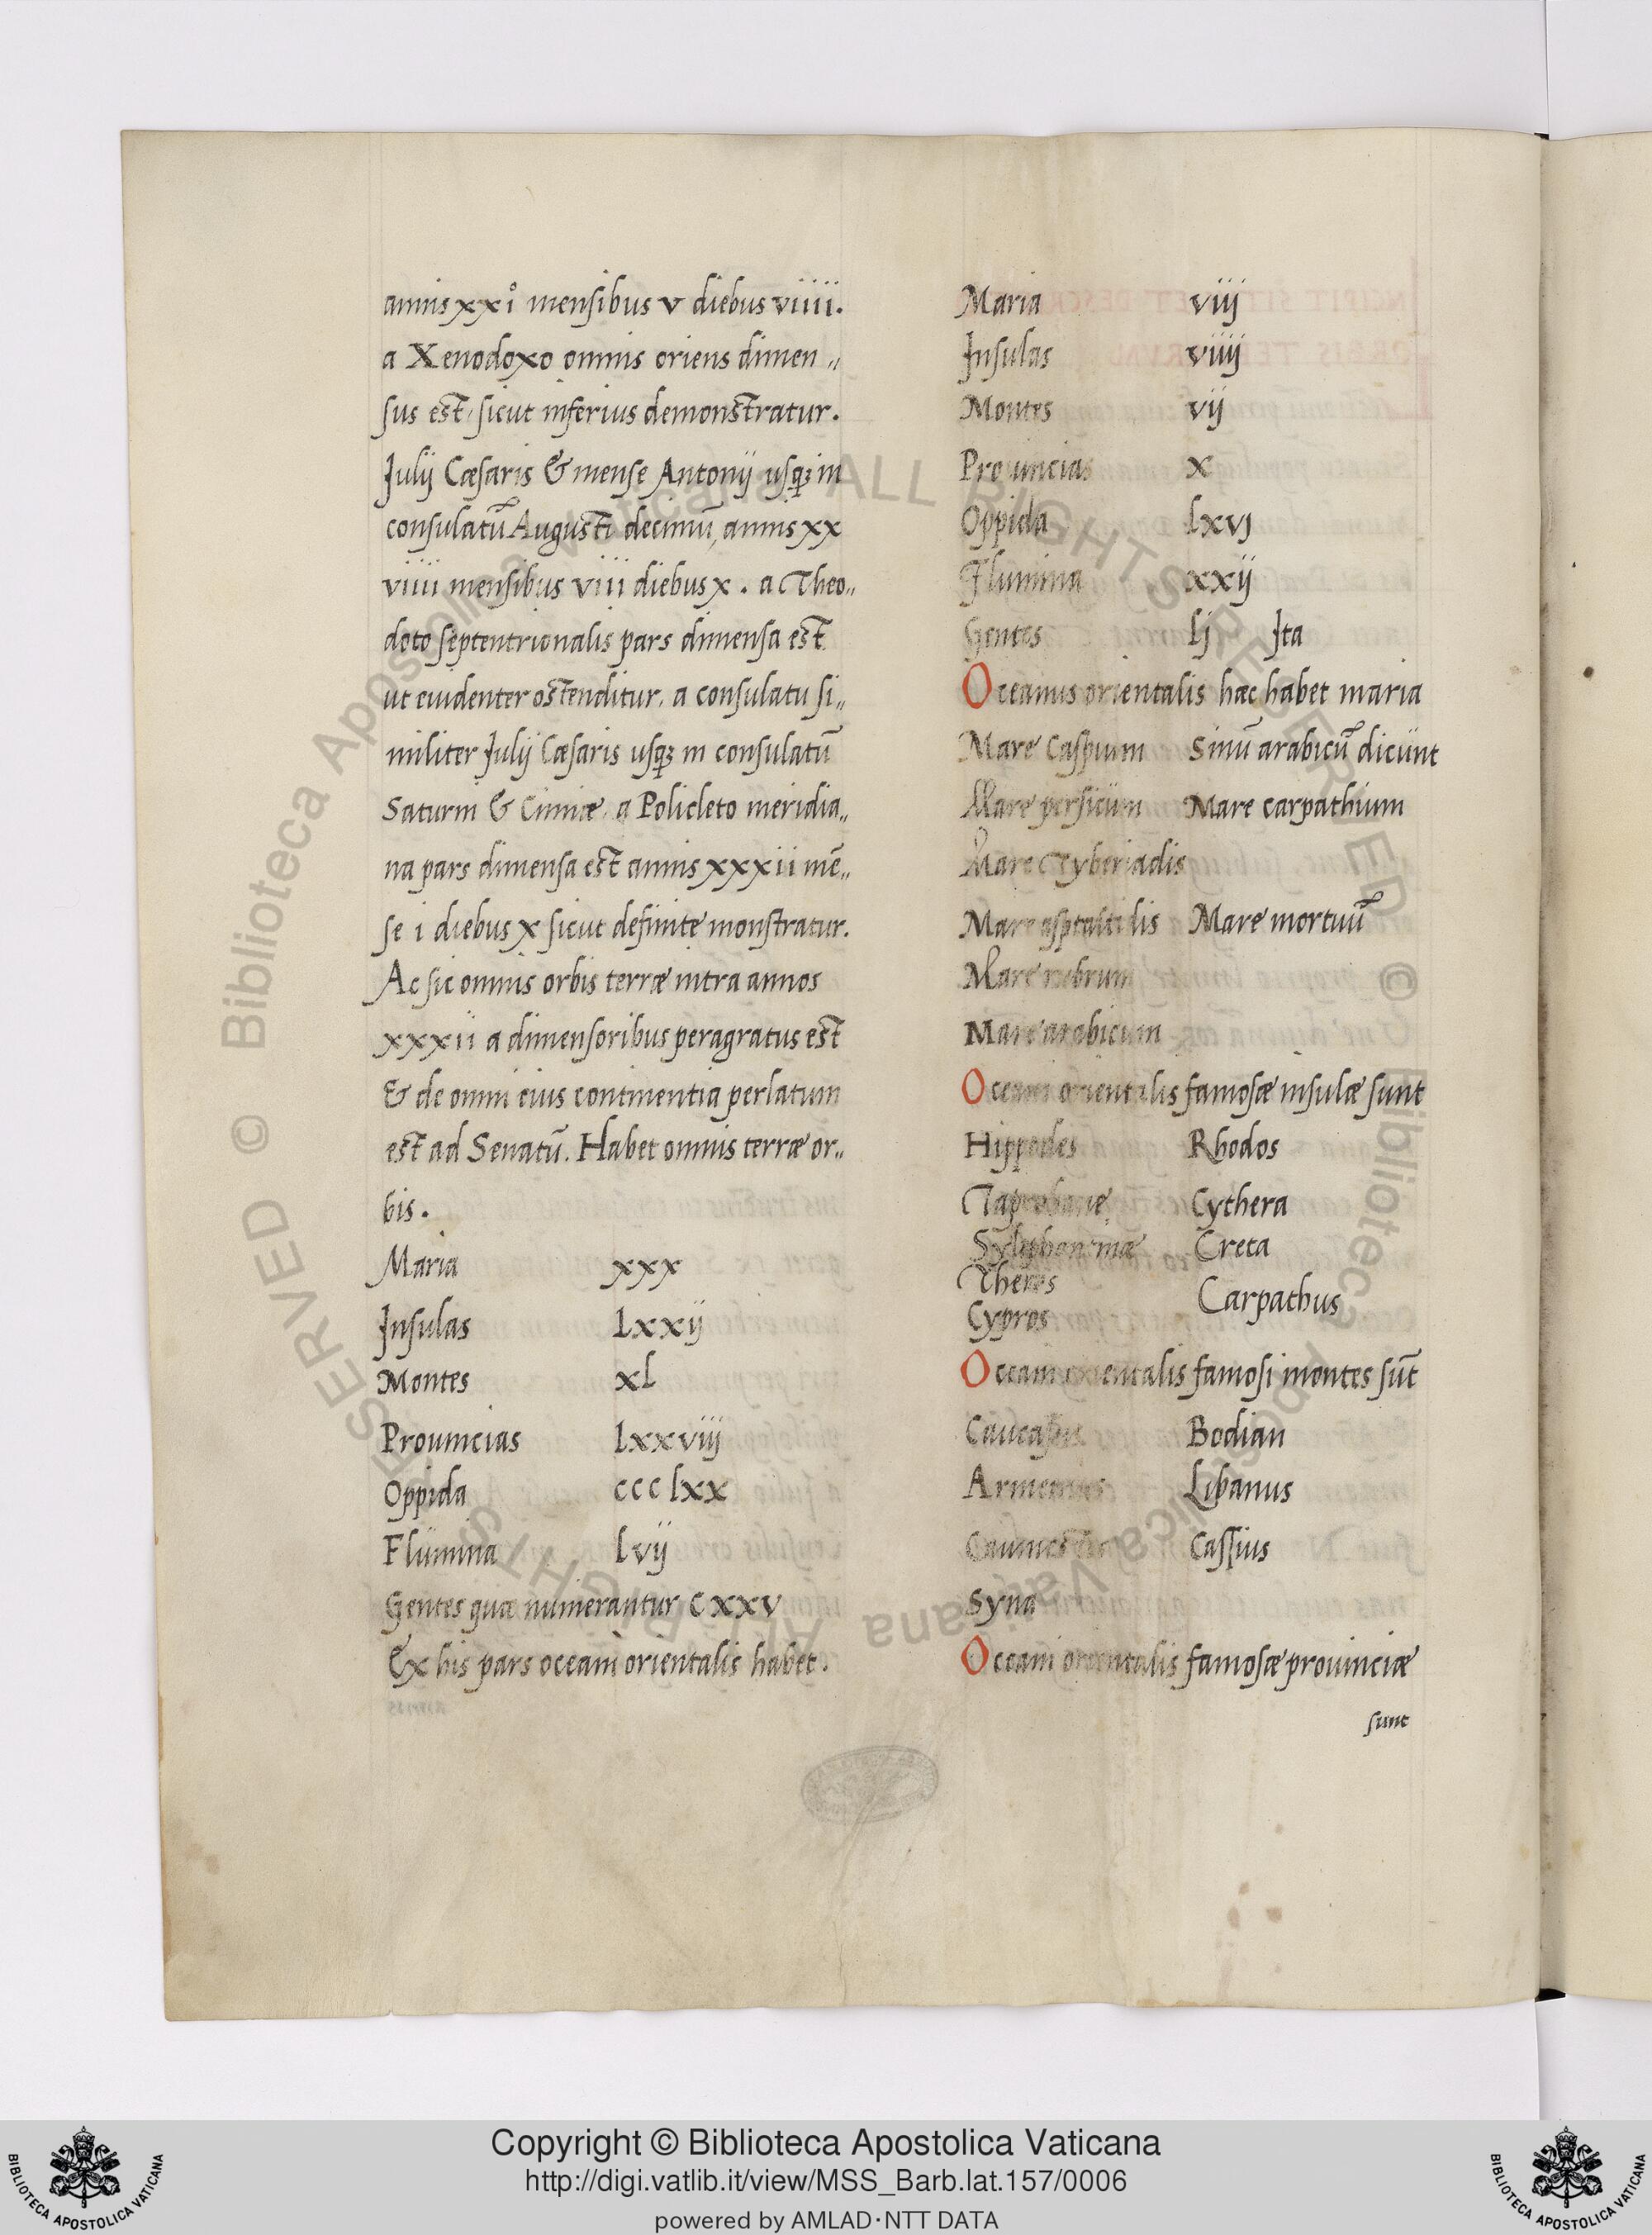 annis xxi° mensibus v diebus viiii.
a Xenodoxo omnis oriens dimen„
sus est, sicut inferius demonstratur.
Julij Cæsaris & mense Antonij usq; in
consulatū Augusti decimū, annis xx
viiii mensibus viii diebus x. a Theo„
doto septentrionalis pars dimensa est
ut euidenter ostenditur, a consulatu si„
militer Julij Cæsaris usq; in consulatū
Saturni & Cinnæ, a Policleto meridia„
na pars dimensa est annis xxxii mē„
se i diebus x sicut definite monstratur.
Ac sic omnis orbis terræ intra annos
xxxii a dimensoribus peragratus est
& de omni eius continentia perlatum
est ad Senatū. Habet omnis terræ or„
bis.
Maria xxx
Insulas Lxxij
Montes xL
Prouincias lxxviij
Oppida ccc lxx
Flumina lvij
Gentes quæ numerantur cxxv
Ex his pars oceani orientalis habet.
Maria viij
Insulas viiij
Montes vij
Prouincias x
Oppida lxvj
Flumina xxij
Gentes lj Ita
Oceanus orientalis hæc habet maria
Mare Caspium Sinū arabicū dicunt
Mare persicum Mare carpathium
Mare Tyberiadis
Mare asptaltidis Mare mortuū
Mare rubrum
Mare arabicum
Oceani orientalis famosæ insulæ sunt
Hippodes Rhodos
Taprobane Cythera
Creta
Theros
Carpathus
Cypros
Oceani orientalis famosi montes sūt
Caucasus Bodian
Armenius Libanus
Caspius
Syna
Oceani orientalis famosæ prouinciæ
sunt
Copyright © Biblioteca Apostolica Vaticana
http://digi.vatlib.it/view/MSS_Barb.lat.157/0006
powered by AMLAD·NTT DATA
BIBLIOTECA APOSTOLICA VATICANA
BIBLIOTECA APOSTOLICA VATICANA